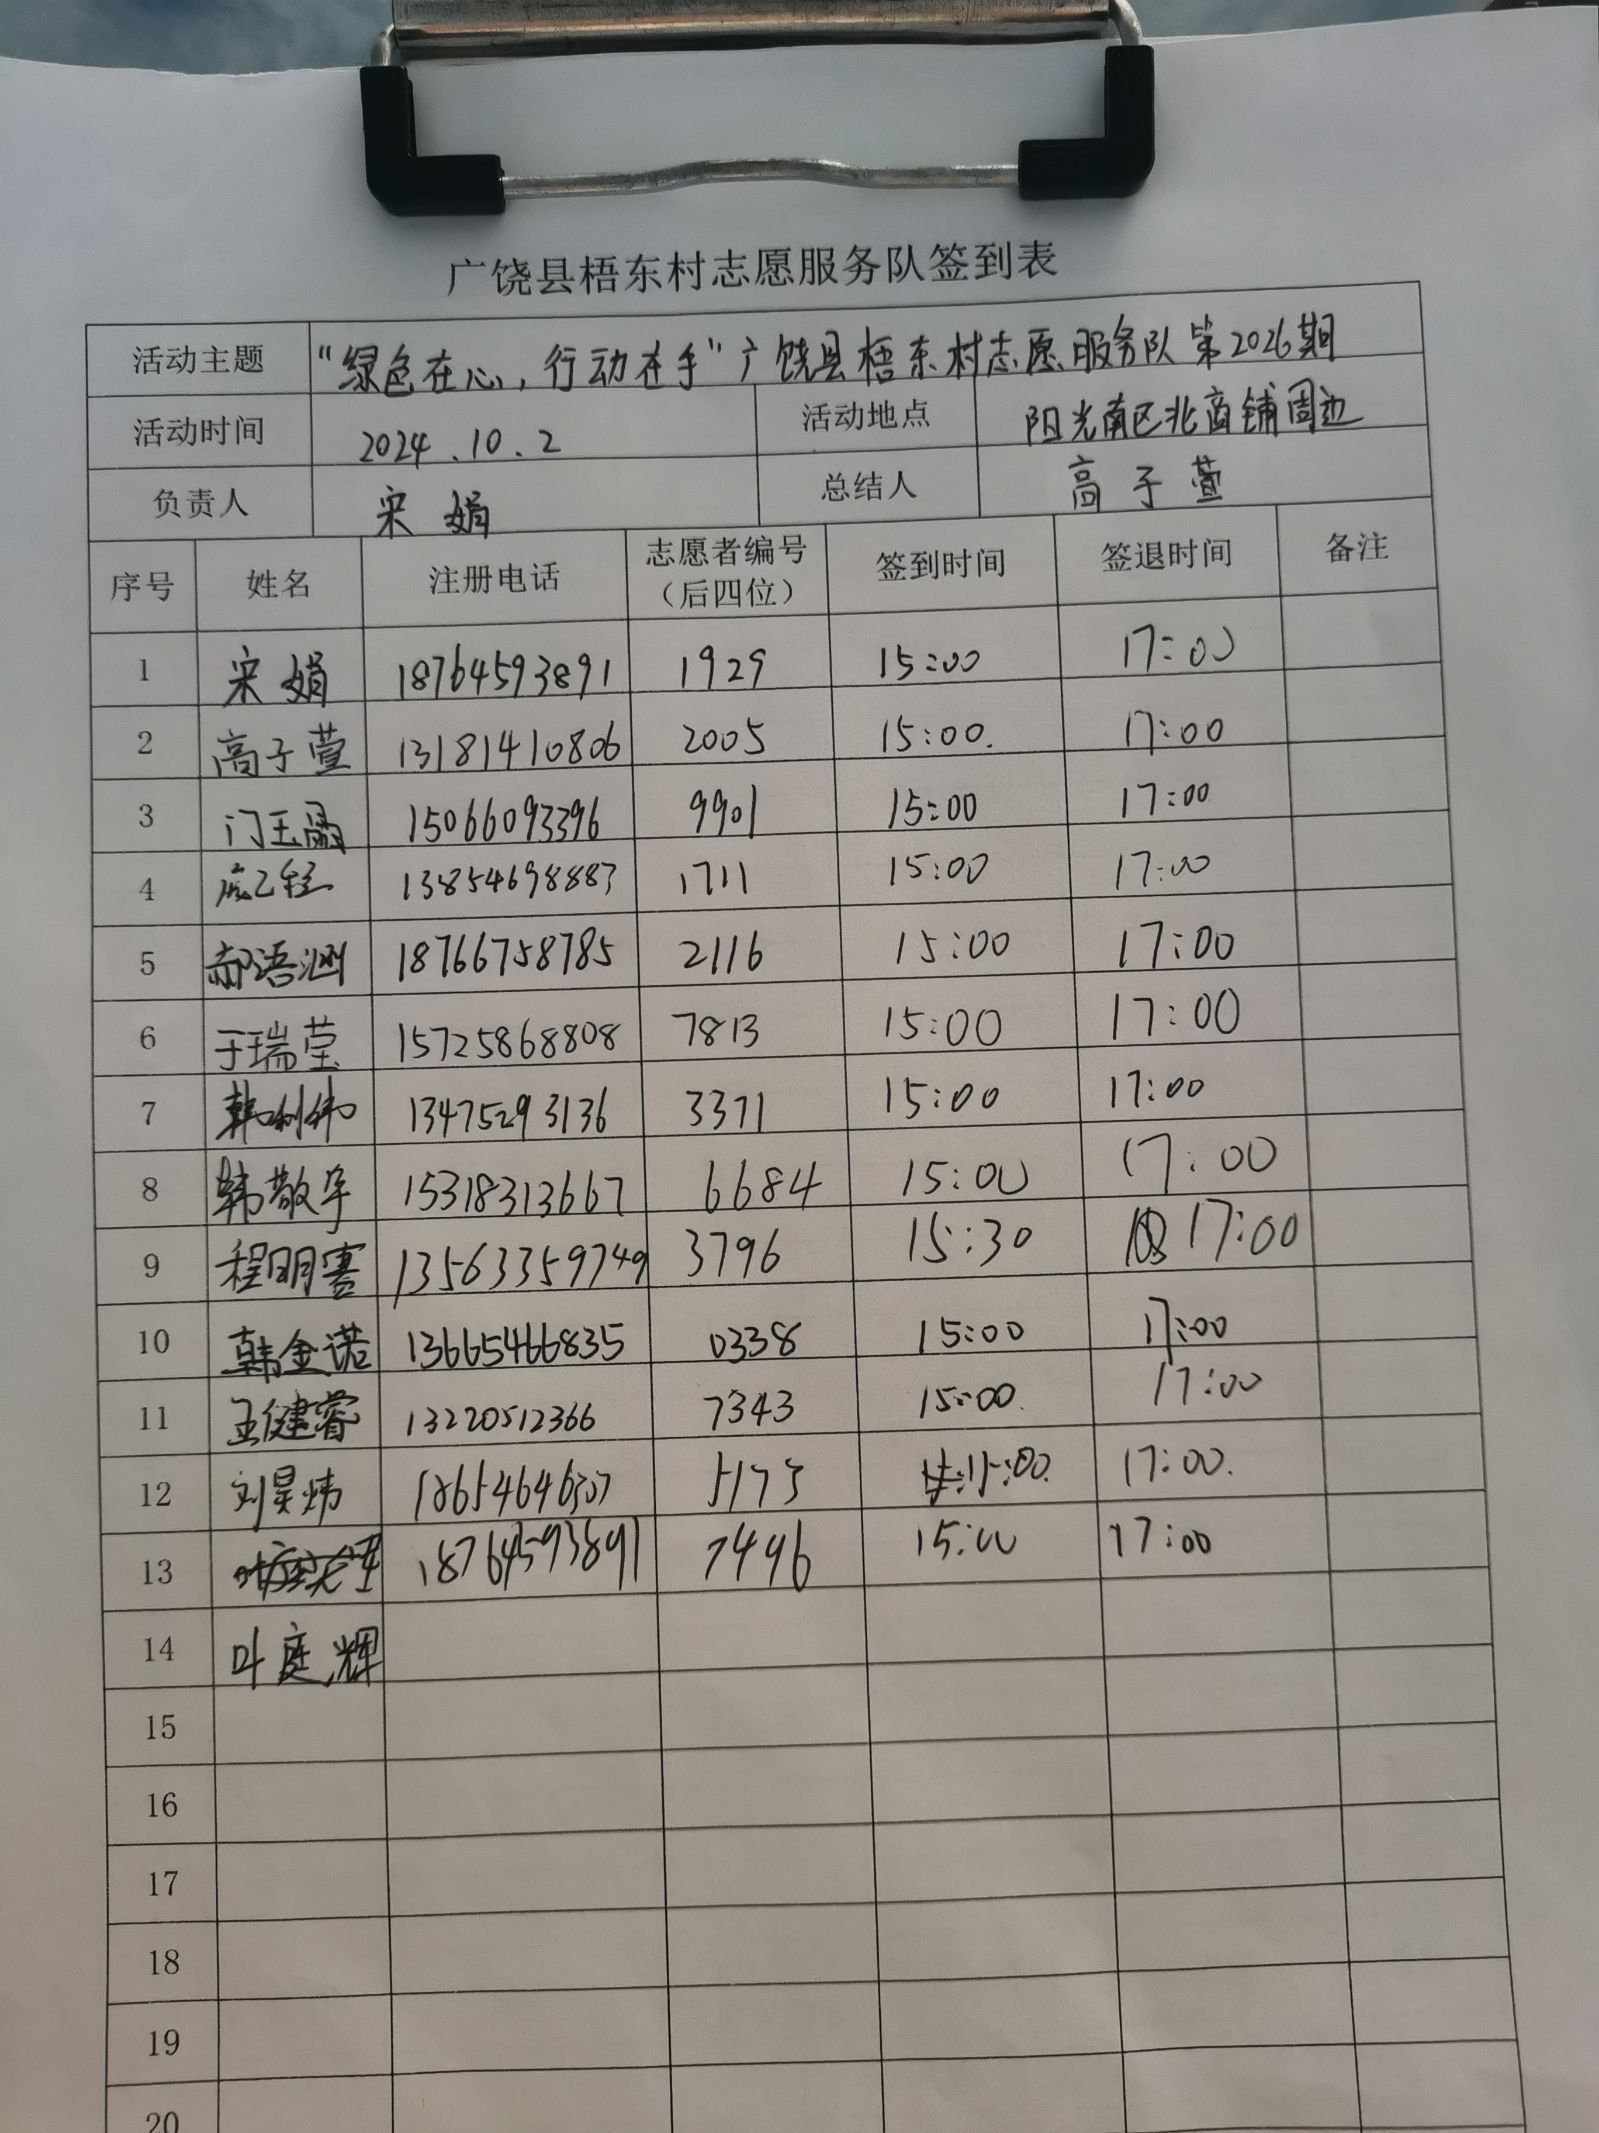 广饶县梧东村志愿服务队签到表
活动主题 "绿色在心，行动在手"广饶县梧东村志愿服务队第2026期
活动时间 2024.10.2 活动地点 阳光南区北商铺周边
负责人 宋娟 总结人 高子萱
序号 姓名 注册电话 志愿者编号（后四位） 签到时间 签退时间 备注
1 宋娟 18764593891 1929 15:00 17:00
2 高子萱 13181410806 2005 15:00. 17:00
3 门玉 15066093396 9901 15:00 17:00
4 13854698883 1711 15:00 17:00
5 郝语涵 18766758785 2116 15:00 17:00
6 于瑞莹 15725868808 7813 15:00 17:00
7 韩利伟 13475293136 3371 15:00 17:00
8 韩敬宇 15318313667 6684 15:00 17:00
9 程明骞 13563359749 3796 15:30 17:00
10 韩金诺 13665466835 0338 15:00 17:00
11 王健睿 13220512366 7343 15:00. 17:00
12 刘昊炜 5173 15:00. 17:00.
13 18764593891 7496 15:00 17:00
14 叶庭辉
15
16
17
18
19
20